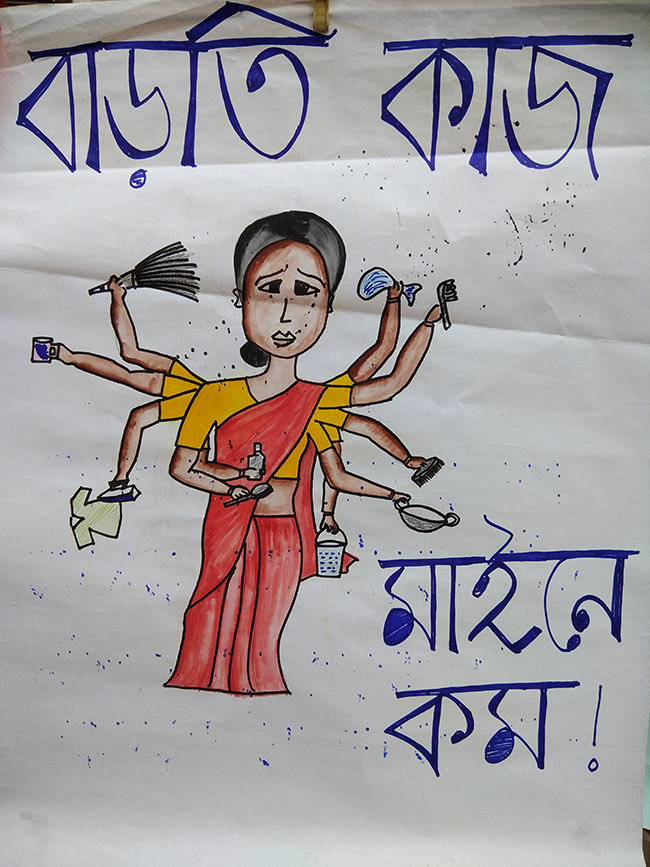 বাড়তি কাজ
মাইনে
কম!